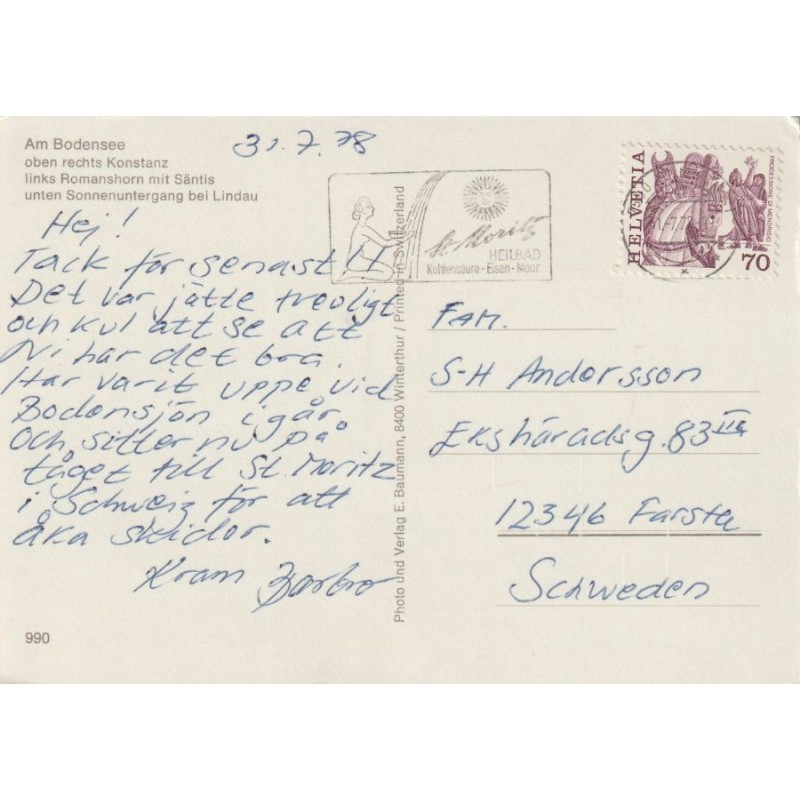 Am Bodensee
oben rechts Konstanz
links Romanshorn mit Säntis
unten Sonnenuntergang bei Lindau
31.7.78
Hej!
Tack för senast!!
Det var jätte trevligt
och kul att se att
Ni har det bra.
Har varit uppe vid
Bodensjön igår
och sitter nu på
tåget till St. Moritz
i Schweiz för att
åka skidor.
Kram Barbro
990
Photo und Verlag E. Baumann, 8400 Winterthur / Printed in Switzerland
St. Moritz
HEILBAD
Kohlensäure - Eisen - Moor
HELVETIA
PROCESSIONI DI MENDRISIO
70
FAM.
S-H Andersson
Ekshäradsg. 83
12346 Farsta
Schweden